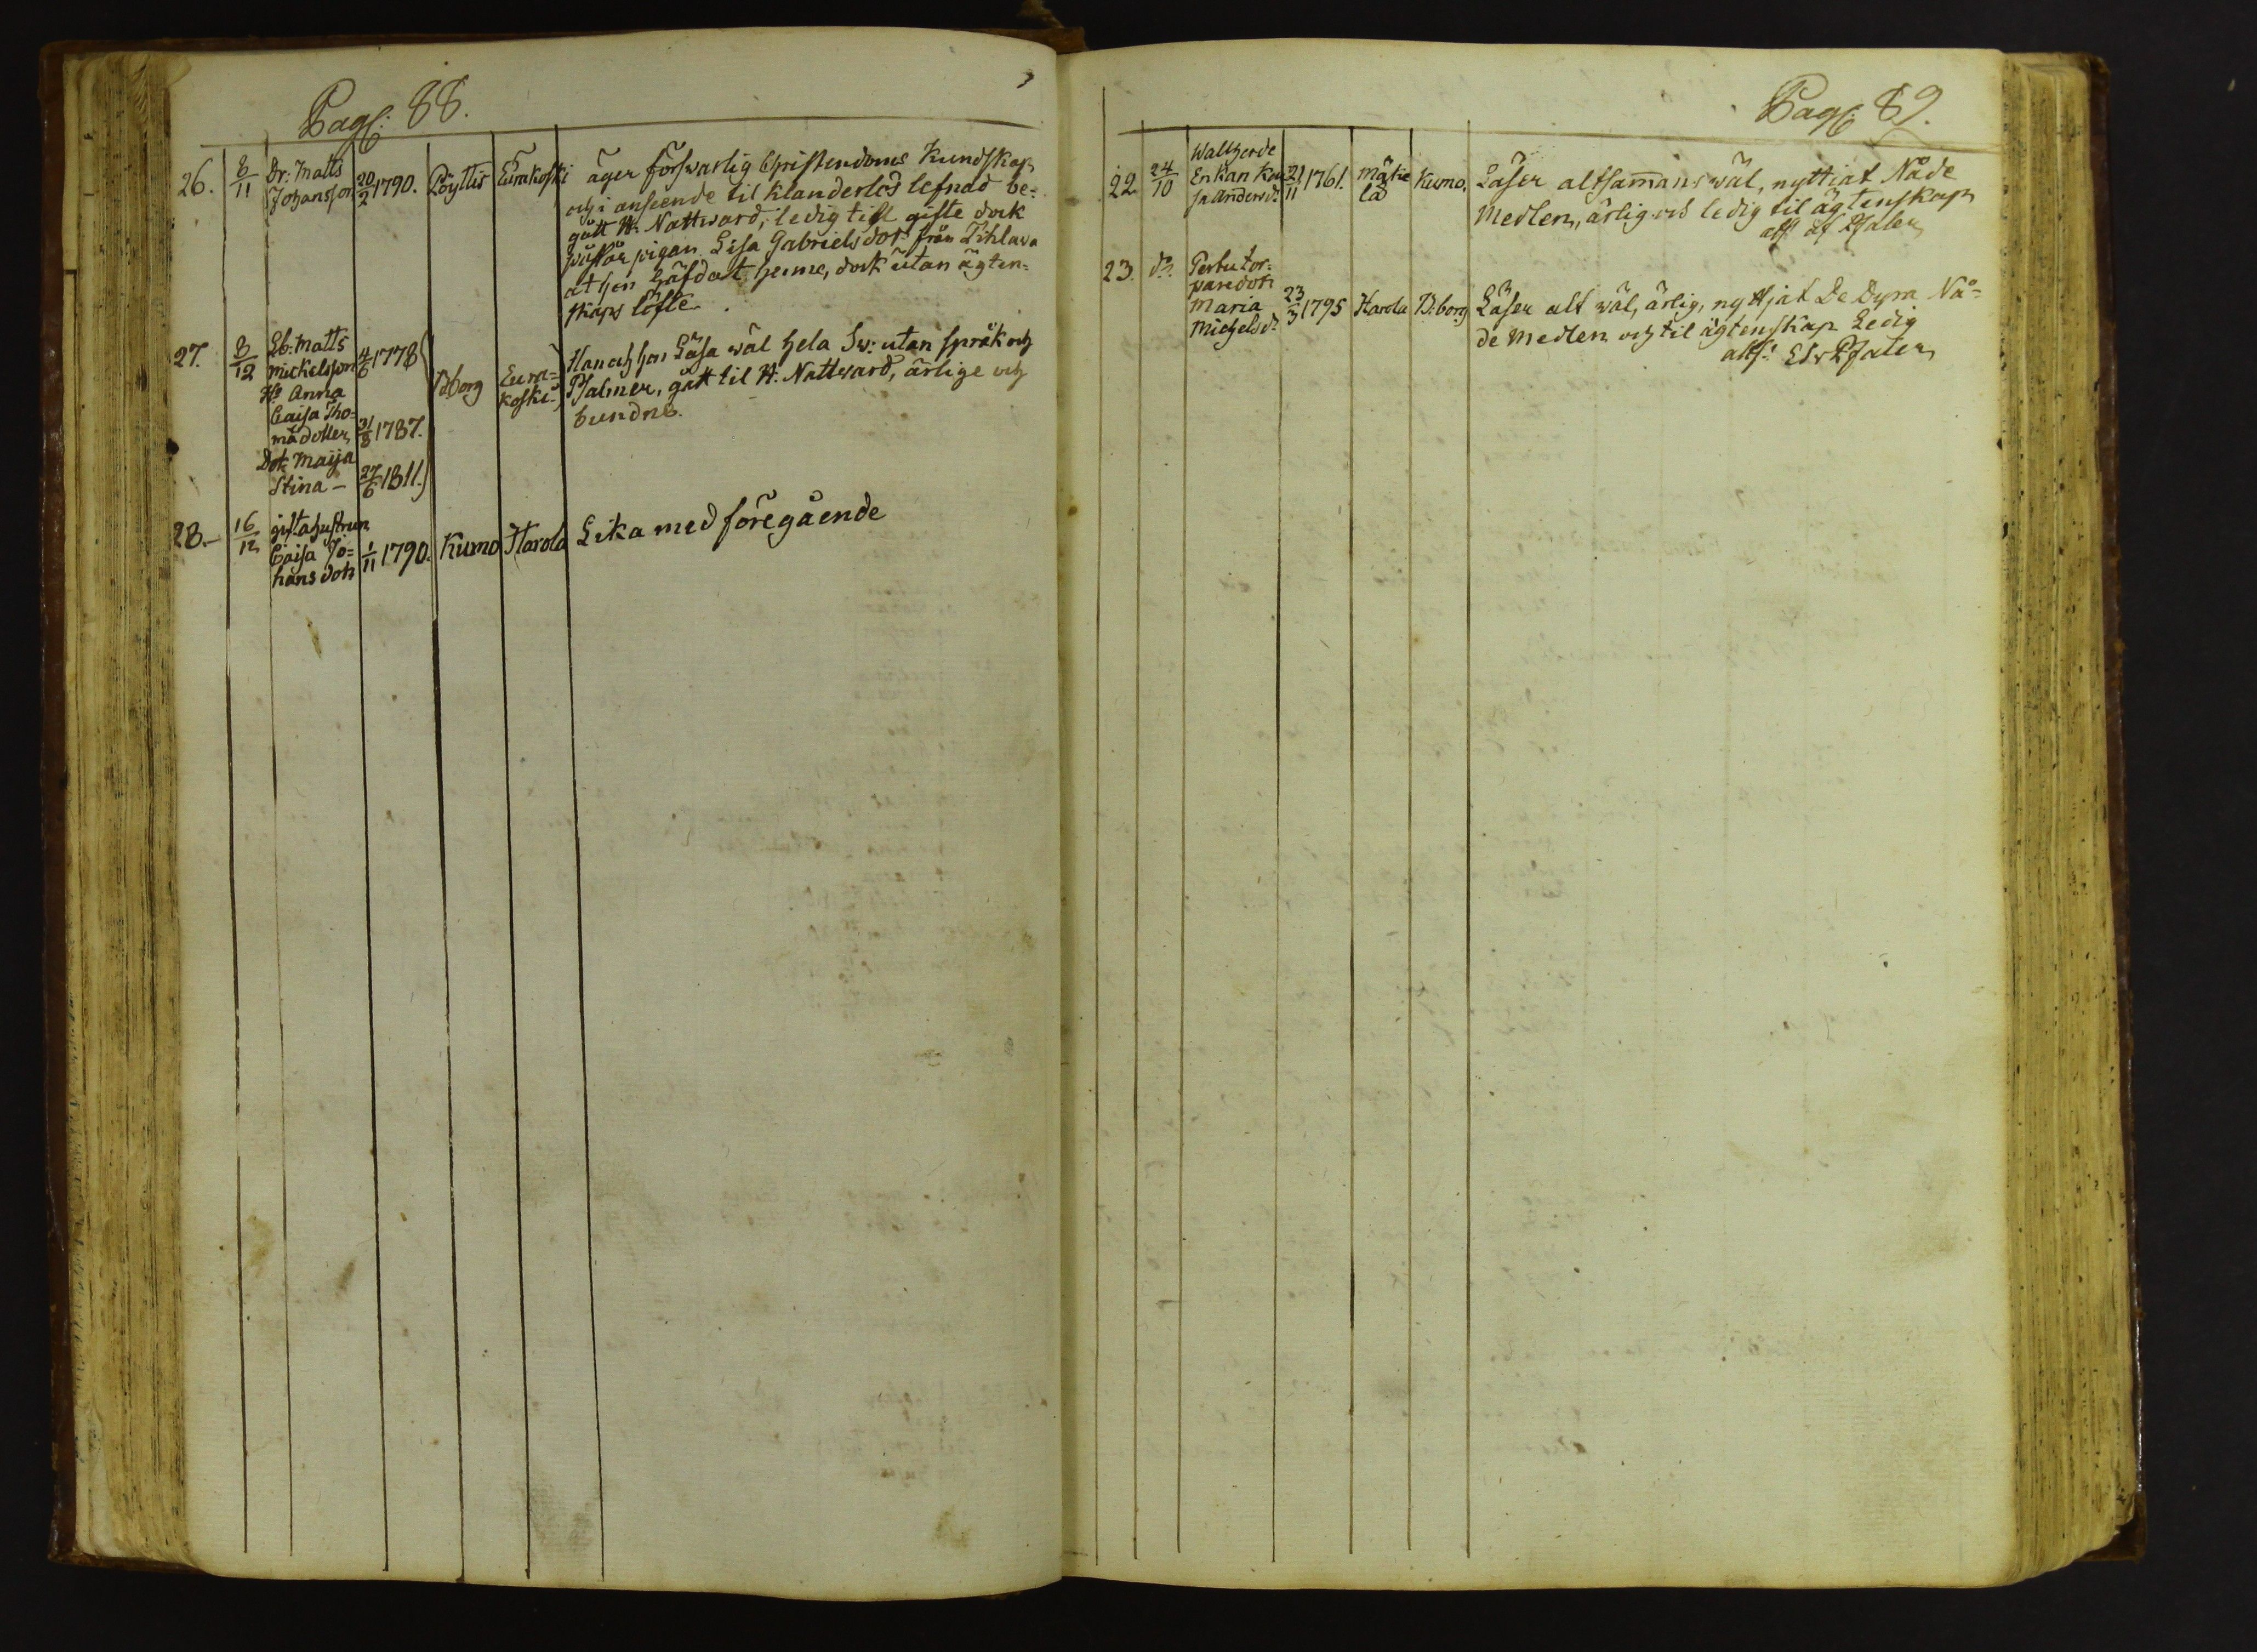 Pag: 88.
26. 8/11 Dr: Matts Johansson 20/2 1790. Löyttis Eurakoski äger förswarlig Christendoms Kundskap
och i anseende til klanderlös lefnad be-
gått H. Nattward, ledig til gifte dock
påstår pigan Lisa Gabrielsdotr från Tihlava
at hon häfdat henne, dock utan ägten-
skaps löfte.
27. 8/12 Lb: Matts
Michelsson 4/6 1778
Hs Anna
Caisa Tho-
mädotter, 31/8 1787.
Dotr Maija
Stina - 27/6 1811.
B:borg Eura-
koski
Han och hon Läsa wäl hela Sw: utan språk och
Psalmer, gått til H. Nattward, ärlige och
bundne.
28.- 16/12 gifta hustrun
Caisa Jo-
hans dotr 1/11 1790. Kumo Harola Lika med föregående
Pag: 89.
22 24/10 Wallherde
Enkan Kai
sa Andersdr 21/11 1761. Mäkie
lä Kumo. Läser altsamans wäl, nyttjat Nåde
Medlen, ärlig och ledig til ägtenskap
att af Pfaler
23. do. Perbu tor-
paredotr
Maria
Michelsdr 23/3 1795 Harola B:borg Läser alt wäl, ärlig, nyttjat De Dyra Nå-
de Medlen och til ägtenskap Ledig
att: